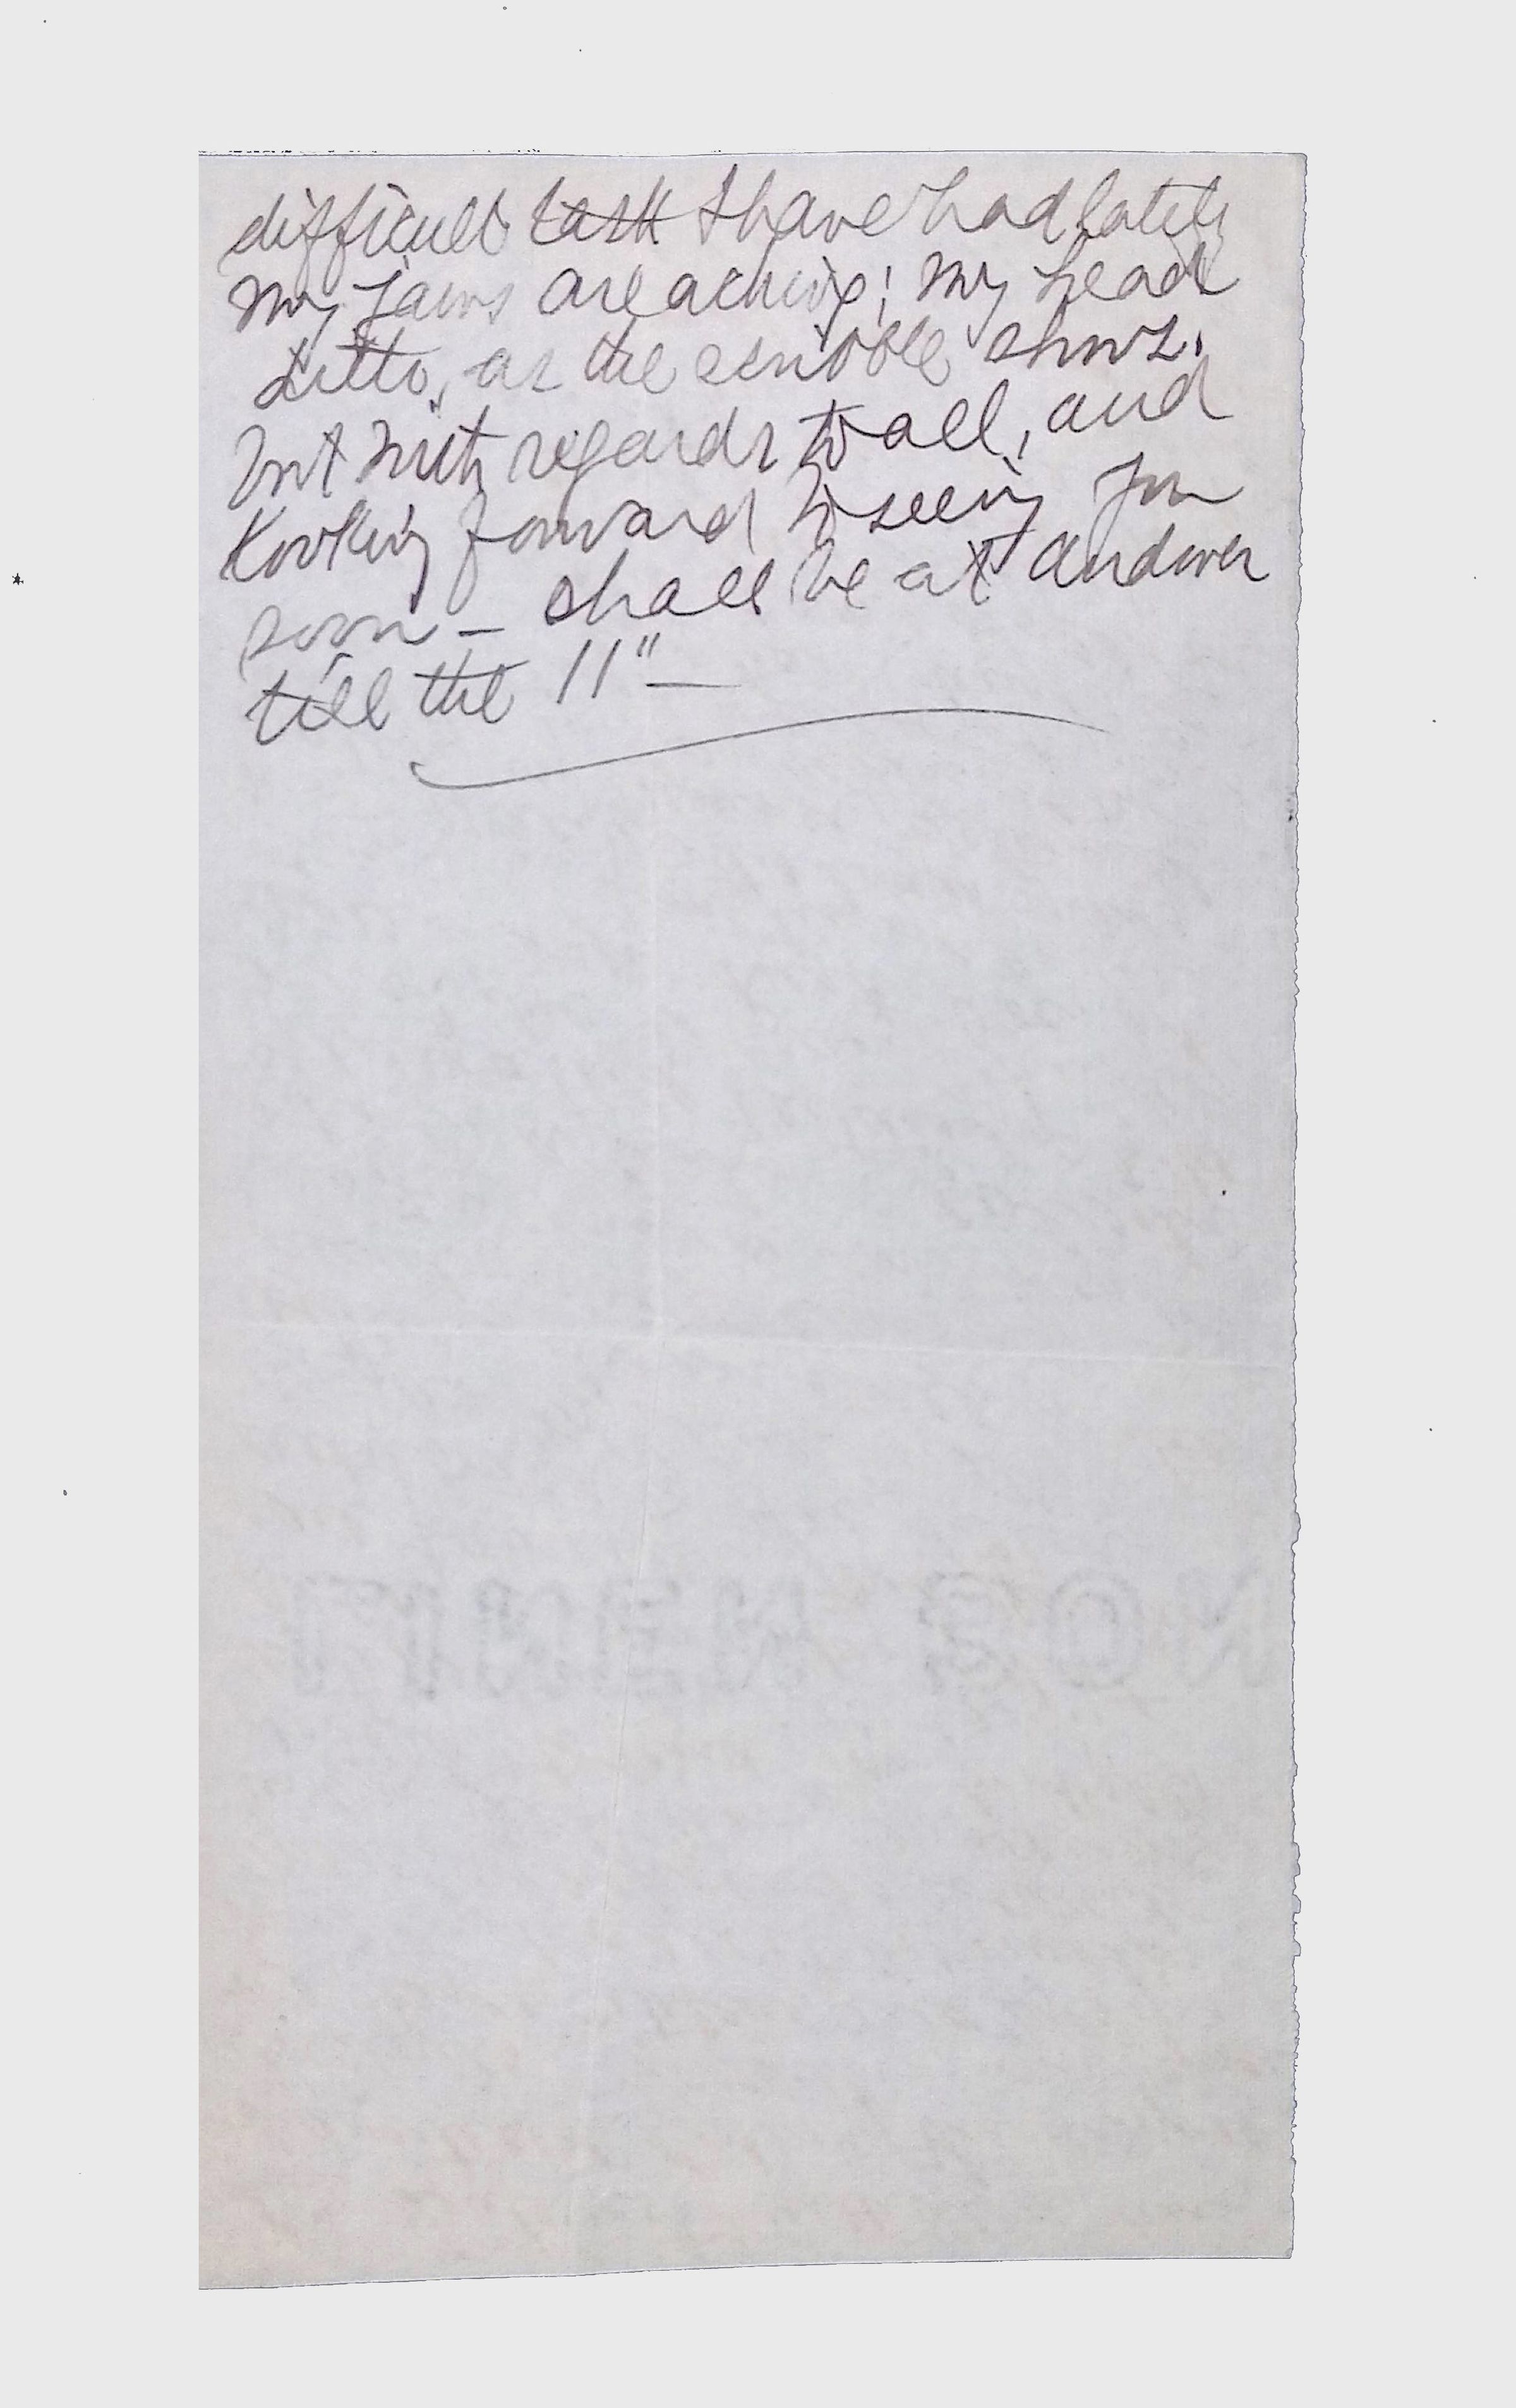 difficult task I have had lately
my jaws are aching; my head
ditto, as the scribble shows.
but with regards to all, and
looking forward to seeing you
soon – shall be at Andover
till the 11"—
LINEN BON